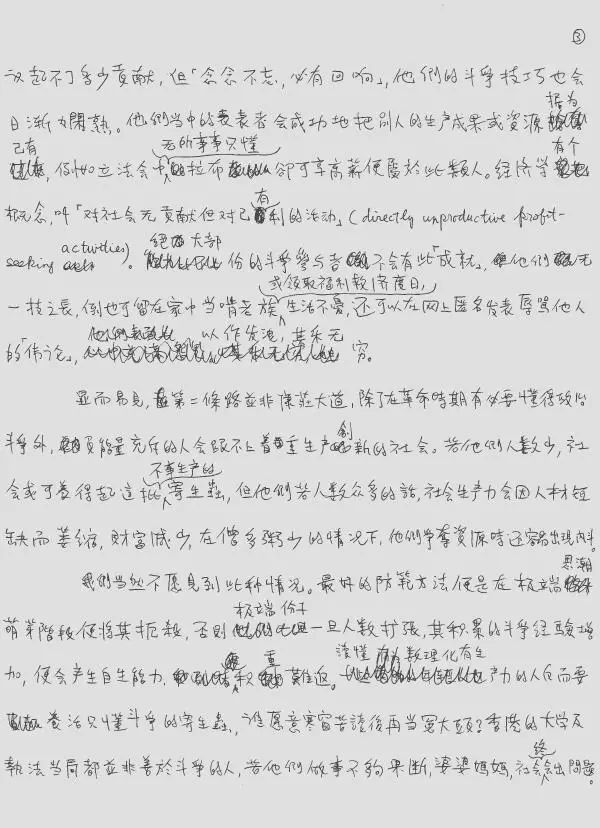 ③
议起不了多少貢献, 但「念念不忘, 必有回响」, 他們的斗爭技巧也会
日漸為閑熟。他們当中的表表者会成功地把別人的生产成果或資源 据为
己有, 例如立法会中 无所事事只懂 拉布 卻可享高薪便屬於此類人。經済学 有个
概念, 叫「对社会无貢献但对己有利的活动」(directly unproductive profit-
seeking activities)。絕大部份的斗爭參与者不会有此「成就」, 他們无
一技之長, 倒也可留在家中当啃老族 或领取福利款濟度日, 生活不憂, 还可以在网上匿名发表辱罵他人
的「偉论」, 以作发洩, 其乐无穷。
显而易見, 第二條路並非康莊大道, 除了在革命時期有必要懂得政治
斗爭外, 負能量充斥的人会跟不上着重生产創新的社会。若他們人数少, 社
会或可養得起這批 不事生产的 寄生蟲, 但他們若人数众多的話, 社会生产力会因人材短
缺而萎缩, 財富减少, 在僧多粥少的情况下, 他們爭奪資源時还容易出現内斗。
我們当然不愿見到此种情况。最好的防範方法便是在极端思潮
萌芽階段便將其扼殺, 否則 极端份子 一旦人数扩張, 其积累的斗爭经驗增
加, 便会产生自生能力, 积重難返。读懂 数理化有生产力的人反而要
養活只懂斗爭的寄生蟲, 谁愿意寒窗苦讀後再当冤大頭? 香港的大学及
執法当局都並非善於斗爭的人, 若他們做事不夠果断, 婆婆媽媽, 社会終会出問題。